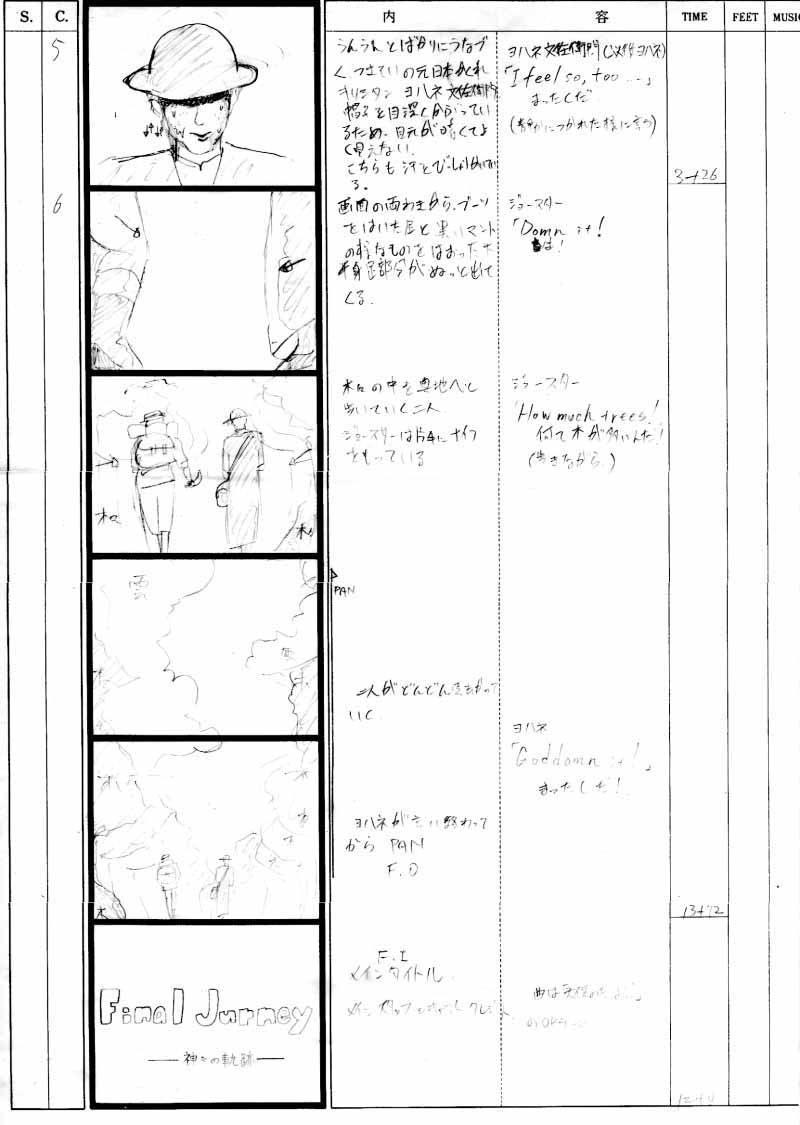 S.
C.
内 容
TIME
FEET
MUSIC
5
うんうんとばかりにうなづ
く つきそいの元日本かくれ
キリシタン ヨハネ 文佐衛門
帽子を目深くかぶってい
るため、目元が暗くてよ
く見えない。
こちらも汗をびっしょりかいてい
る。
ヨハネ文佐衛門(以後ヨハネ)
「I feel so, too …」
まったくだ
(静かにつかれた様に言う)
3+26
6
画面の両わきから、ブーツ
をはいた足と黒いマント
の様なものをはおった下
半身部分がぬっと出て
くる.
ジョースター
「Domn it!
は!
木々の中を奥地へと
歩いていく二人
ジョースターは片手にナイフ
をもっている
ジョースター
「How much trees!
何て木が多いんだ!
(歩きながら.)
木々
木
雲
PAN
二人がどんどん遠ざかって
いく.
ヨハネ
「Goddomn it!」
まったくだ!
ヨハネが言い終わって
から PAN
F.O
木
13+12
F.I
メインタイトル
メインスタッフ
Final Jurney
神々の軌跡
曲は天使の